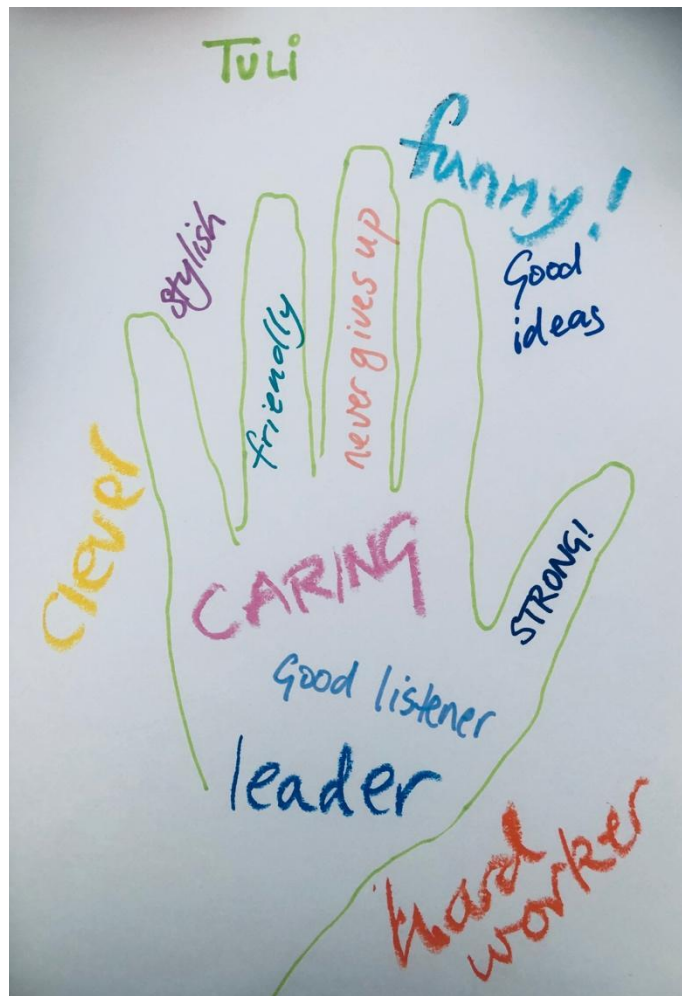 TULi
funny!
stylish
Good
ideas
friendly
never gives up
clever
CARING
STRONG!
Good listener
leader
hard
worker